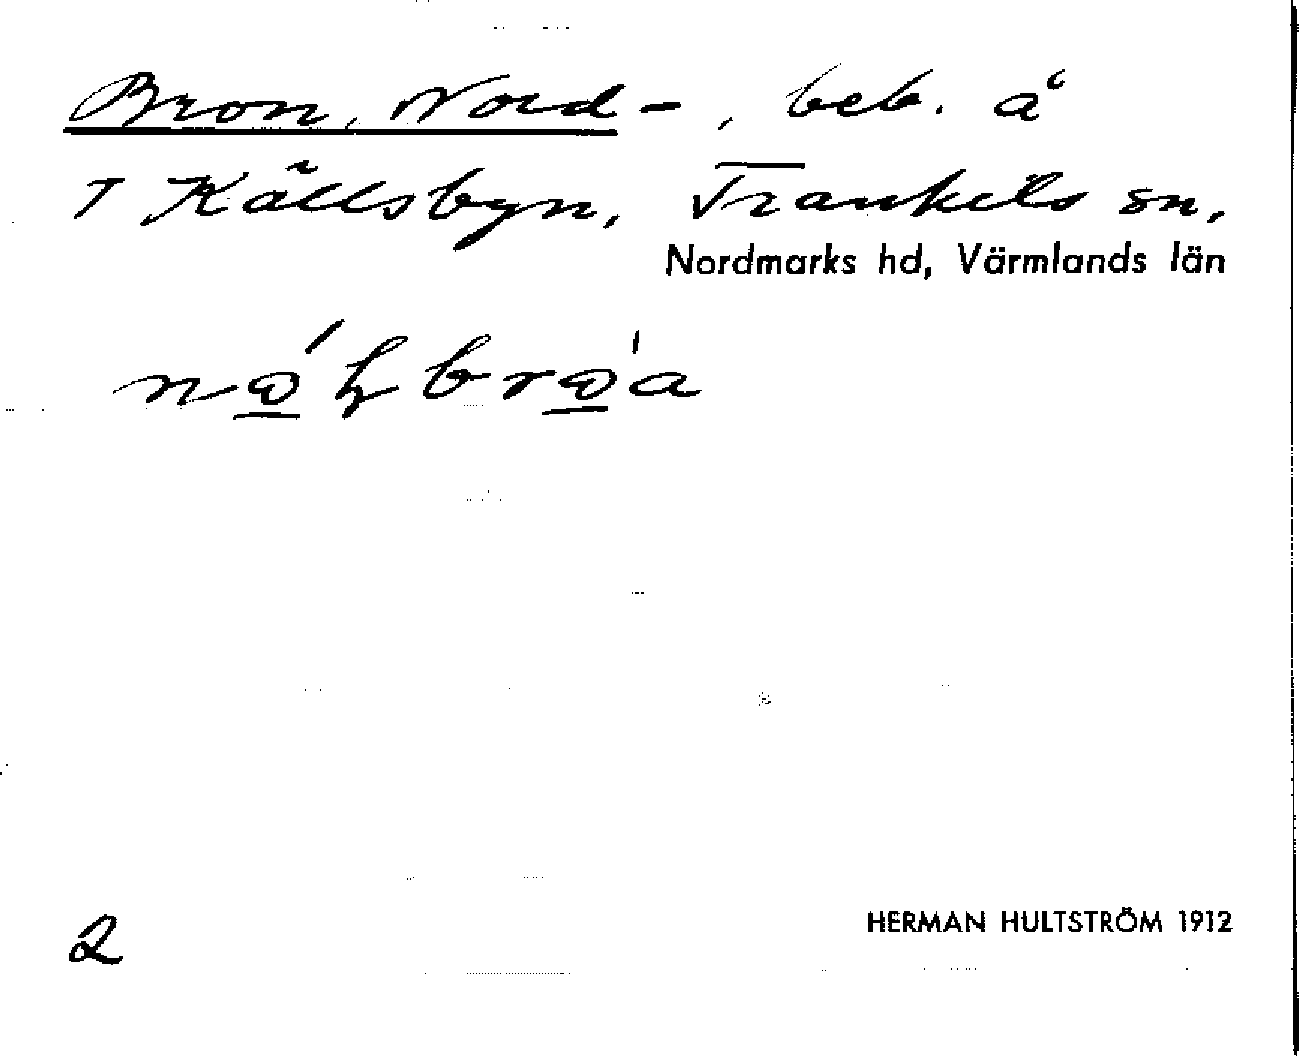 Bron, Nord-, beb. å
T Källsbyn, Trankils sn,
Nordmarks hd, Värmlands län
2
HERMAN HULTSTRÖM 1912